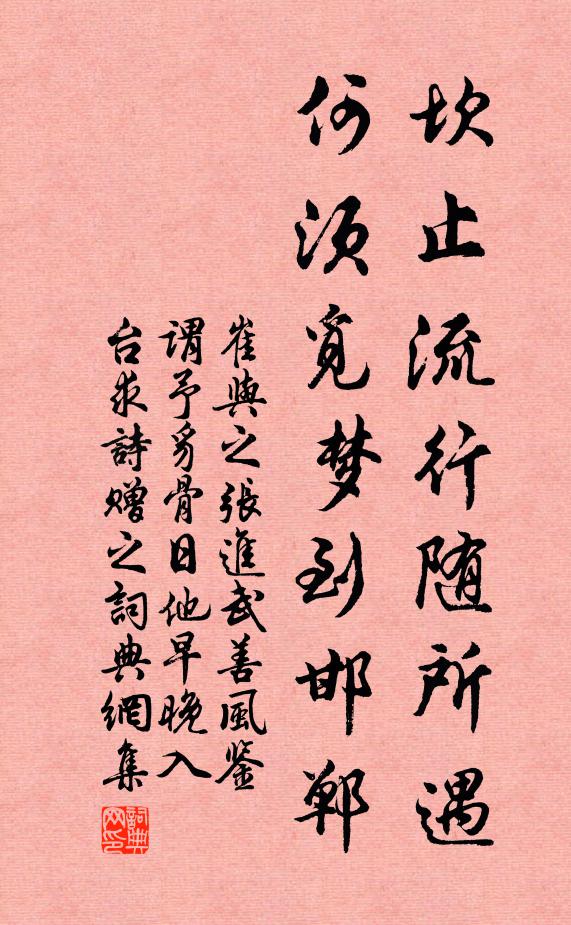 坎止流行随所遇
何须觅梦到邯郸
崔與之張進武善風鑒
謂予豸骨日他早晚入
台求詩贈之詞典網集
詞典网印